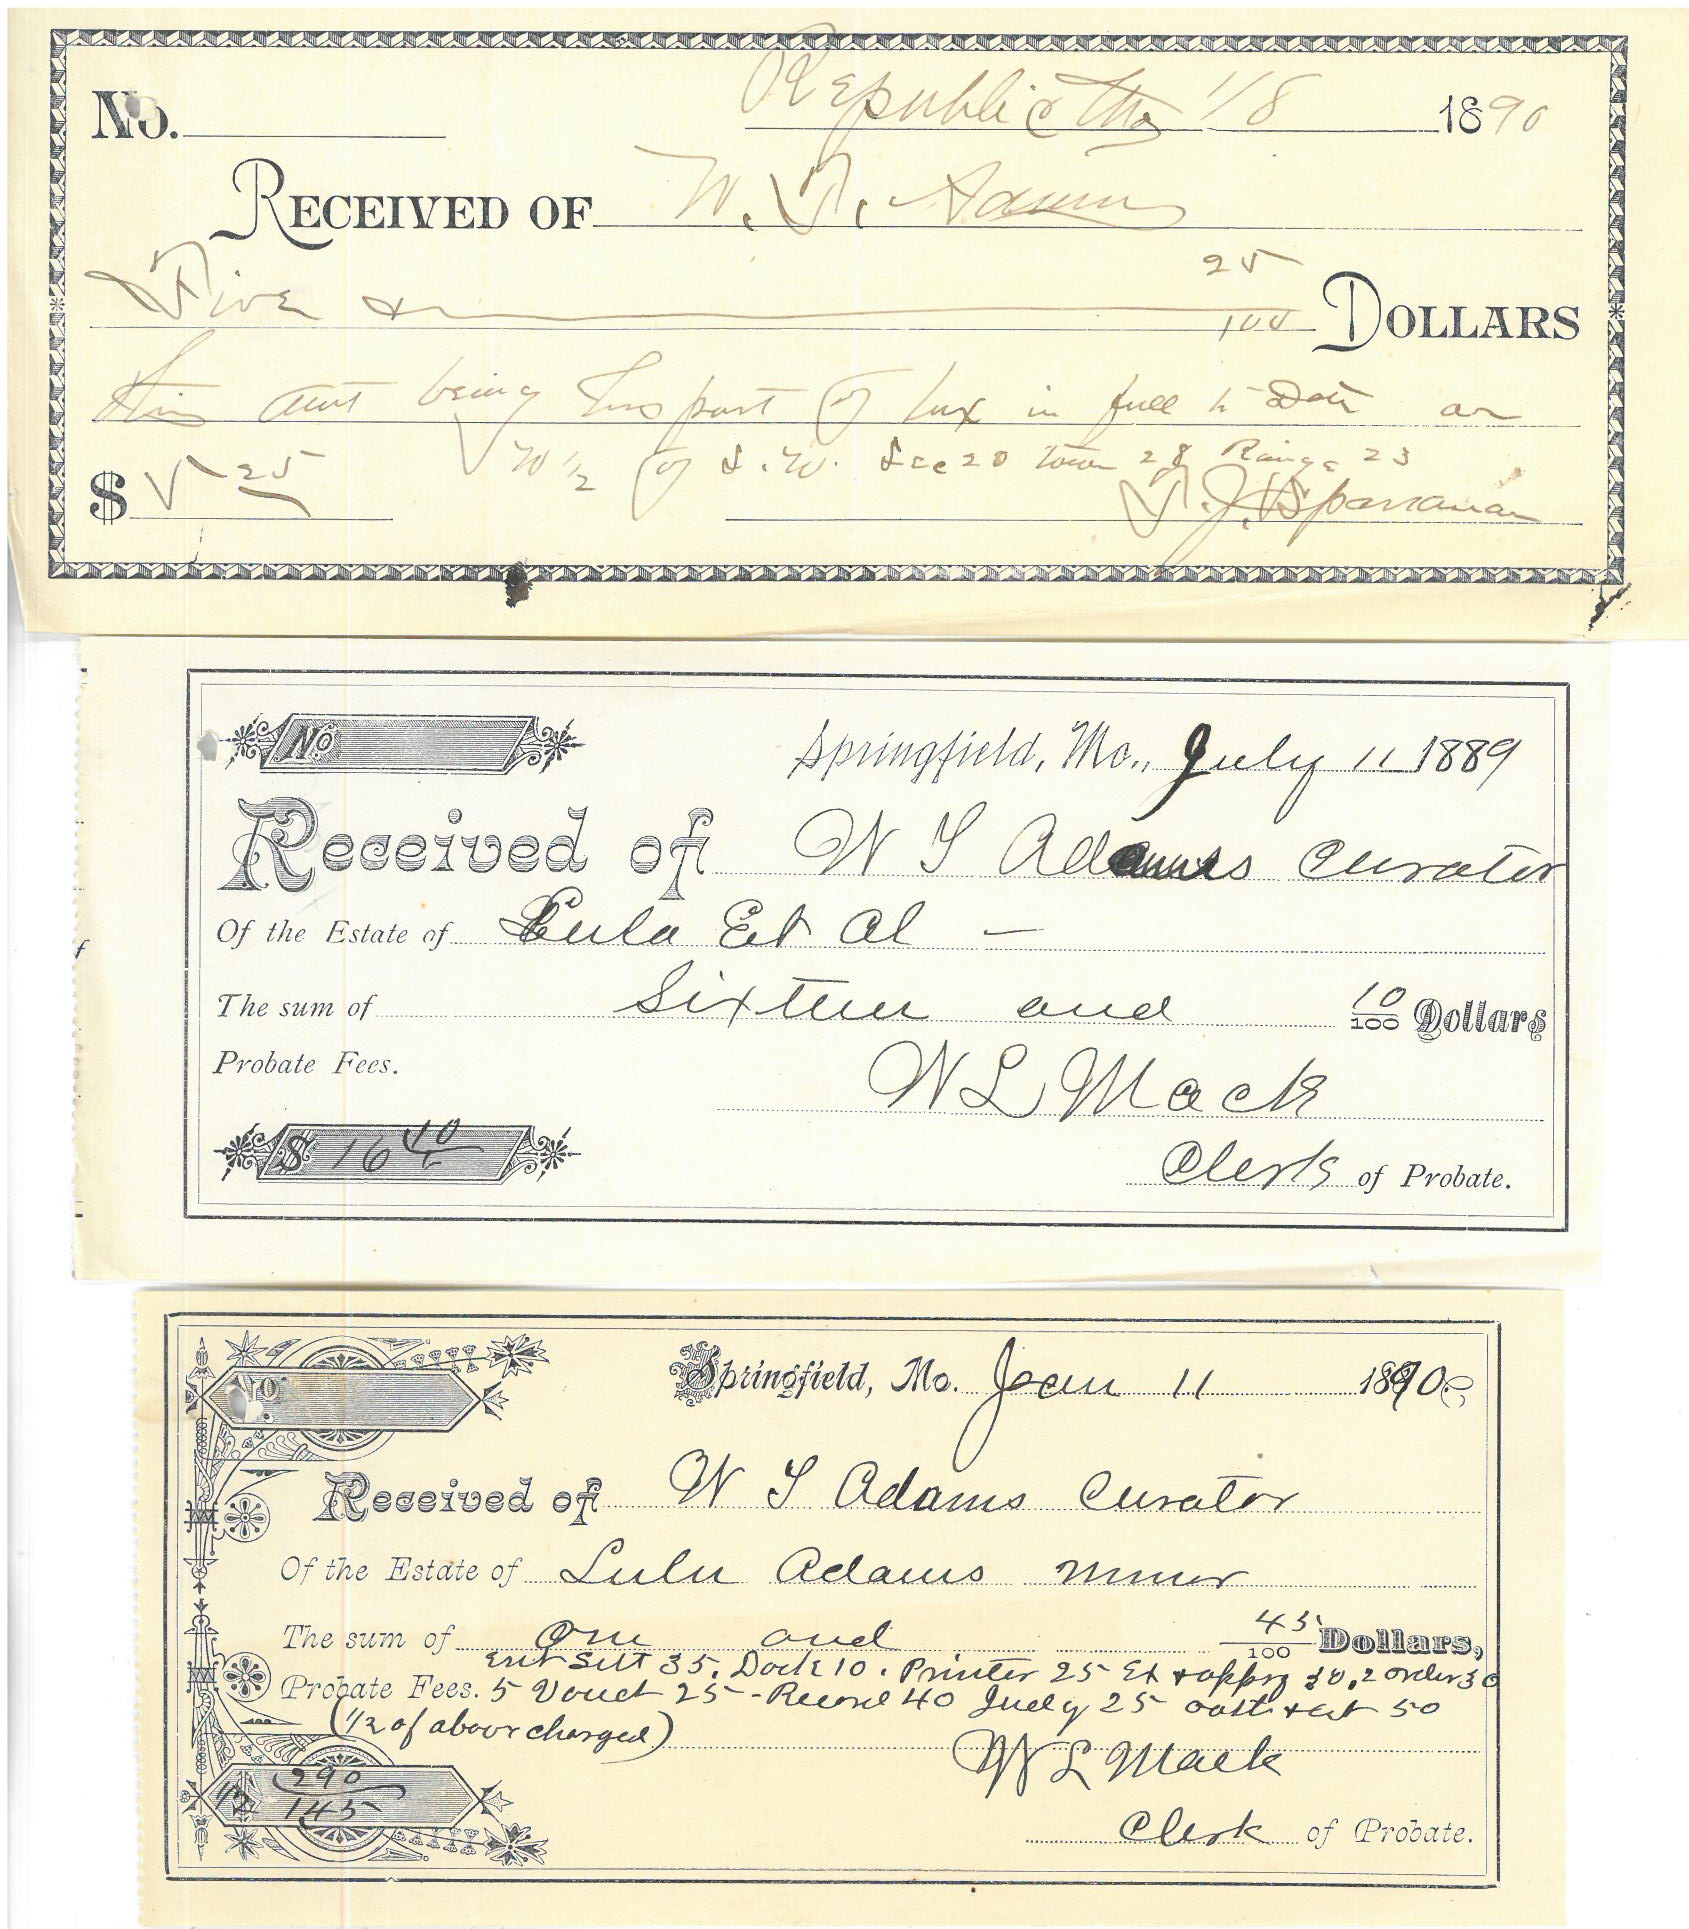 No.
Republic Mo 1/8 1890
RECEIVED OF W. T. Adams
Five & 25/100 DOLLARS
this amt being his part of tax in full to Date on
W 1/2 of S. W. Sec 20 town 28 Range 23
$ 5 25
T. J. Sparkman
No
Springfield, Mo., July 11 1889
Received of W T Adams Curator
Of the Estate of Lula Et Al —
The sum of Sixteen and 10/100 Dollars
Probate Fees.
W L Mack
$ 16 10
Clerk of Probate.
No.
Springfield, Mo. Jan 11 1890
Received of W T Adams Curator
Of the Estate of Lulu Adams minor
The sum of One and 45/100 Dollars,
Sett 35. Dock 10. Printer 25 Ex & apprg 30. 2 orders 30
Probate Fees. 5 Vouch 25 - Record 40 Judg 25 oath & cert 50
(1/2 of above charged)
W L Mack
290
1/2 145
Clerk of Probate.